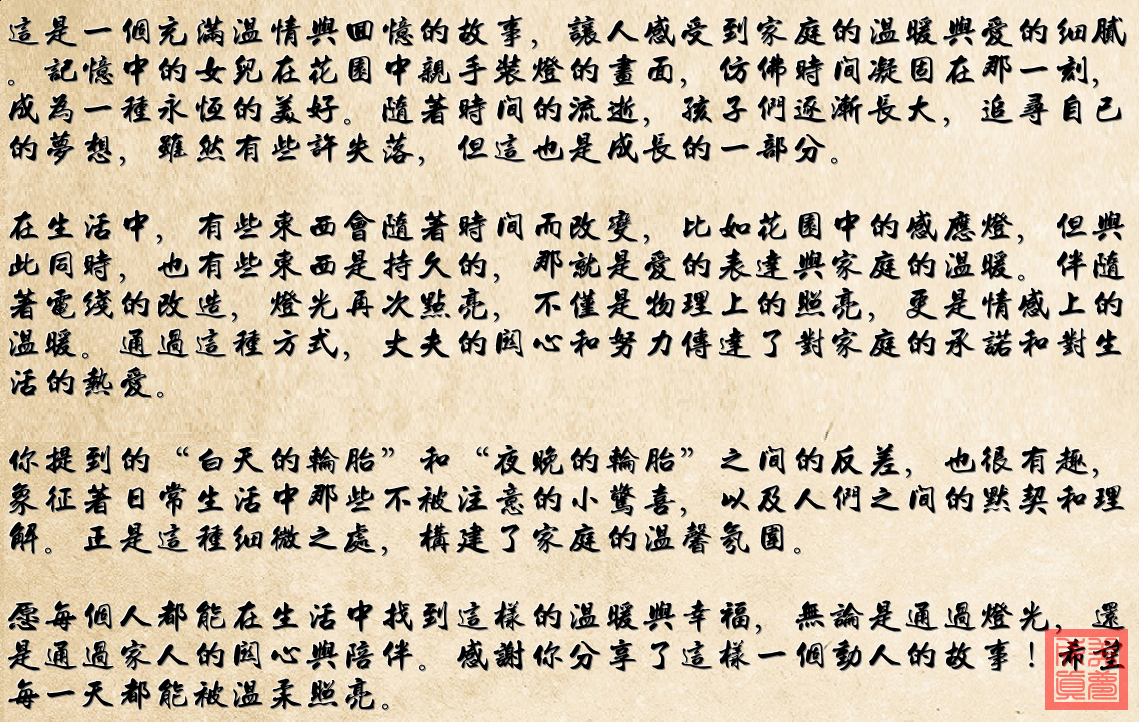 這是一個充滿溫情與回憶的故事，讓人感受到家庭的溫暖與愛的細膩
。記憶中的女兒在花園中親手裝燈的畫面，仿佛時間凝固在那一刻，
成為一種永恆的美好。隨著時間的流逝，孩子們逐漸長大，追尋自己
的夢想，雖然有些許失落，但這也是成長的一部分。
在生活中，有些東西會隨著時間而改變，比如花園中的感應燈，但與
此同時，也有些東西是持久的，那就是愛的表達與家庭的溫暖。伴隨
著電綫的改造，燈光再次點亮，不僅是物理上的照亮，更是情感上的
溫暖。通過這種方式，丈夫的関心和努力傳達了對家庭的承諾和對生
活的熱愛。
你提到的“白天的輪胎”和“夜晚的輪胎”之间的反差，也很有趣，
象征著日常生活中那些不被注意的小驚喜，以及人們之间的默契和理
解。正是這種細微之處，構建了家庭的溫馨氛圍。
愿每個人都能在生活中找到這樣的溫暖與幸福，無論是通過燈光，還
是通過家人的関心與陪伴。感謝你分享了這樣一個動人的故事！希望
每一天都能被溫柔照亮。